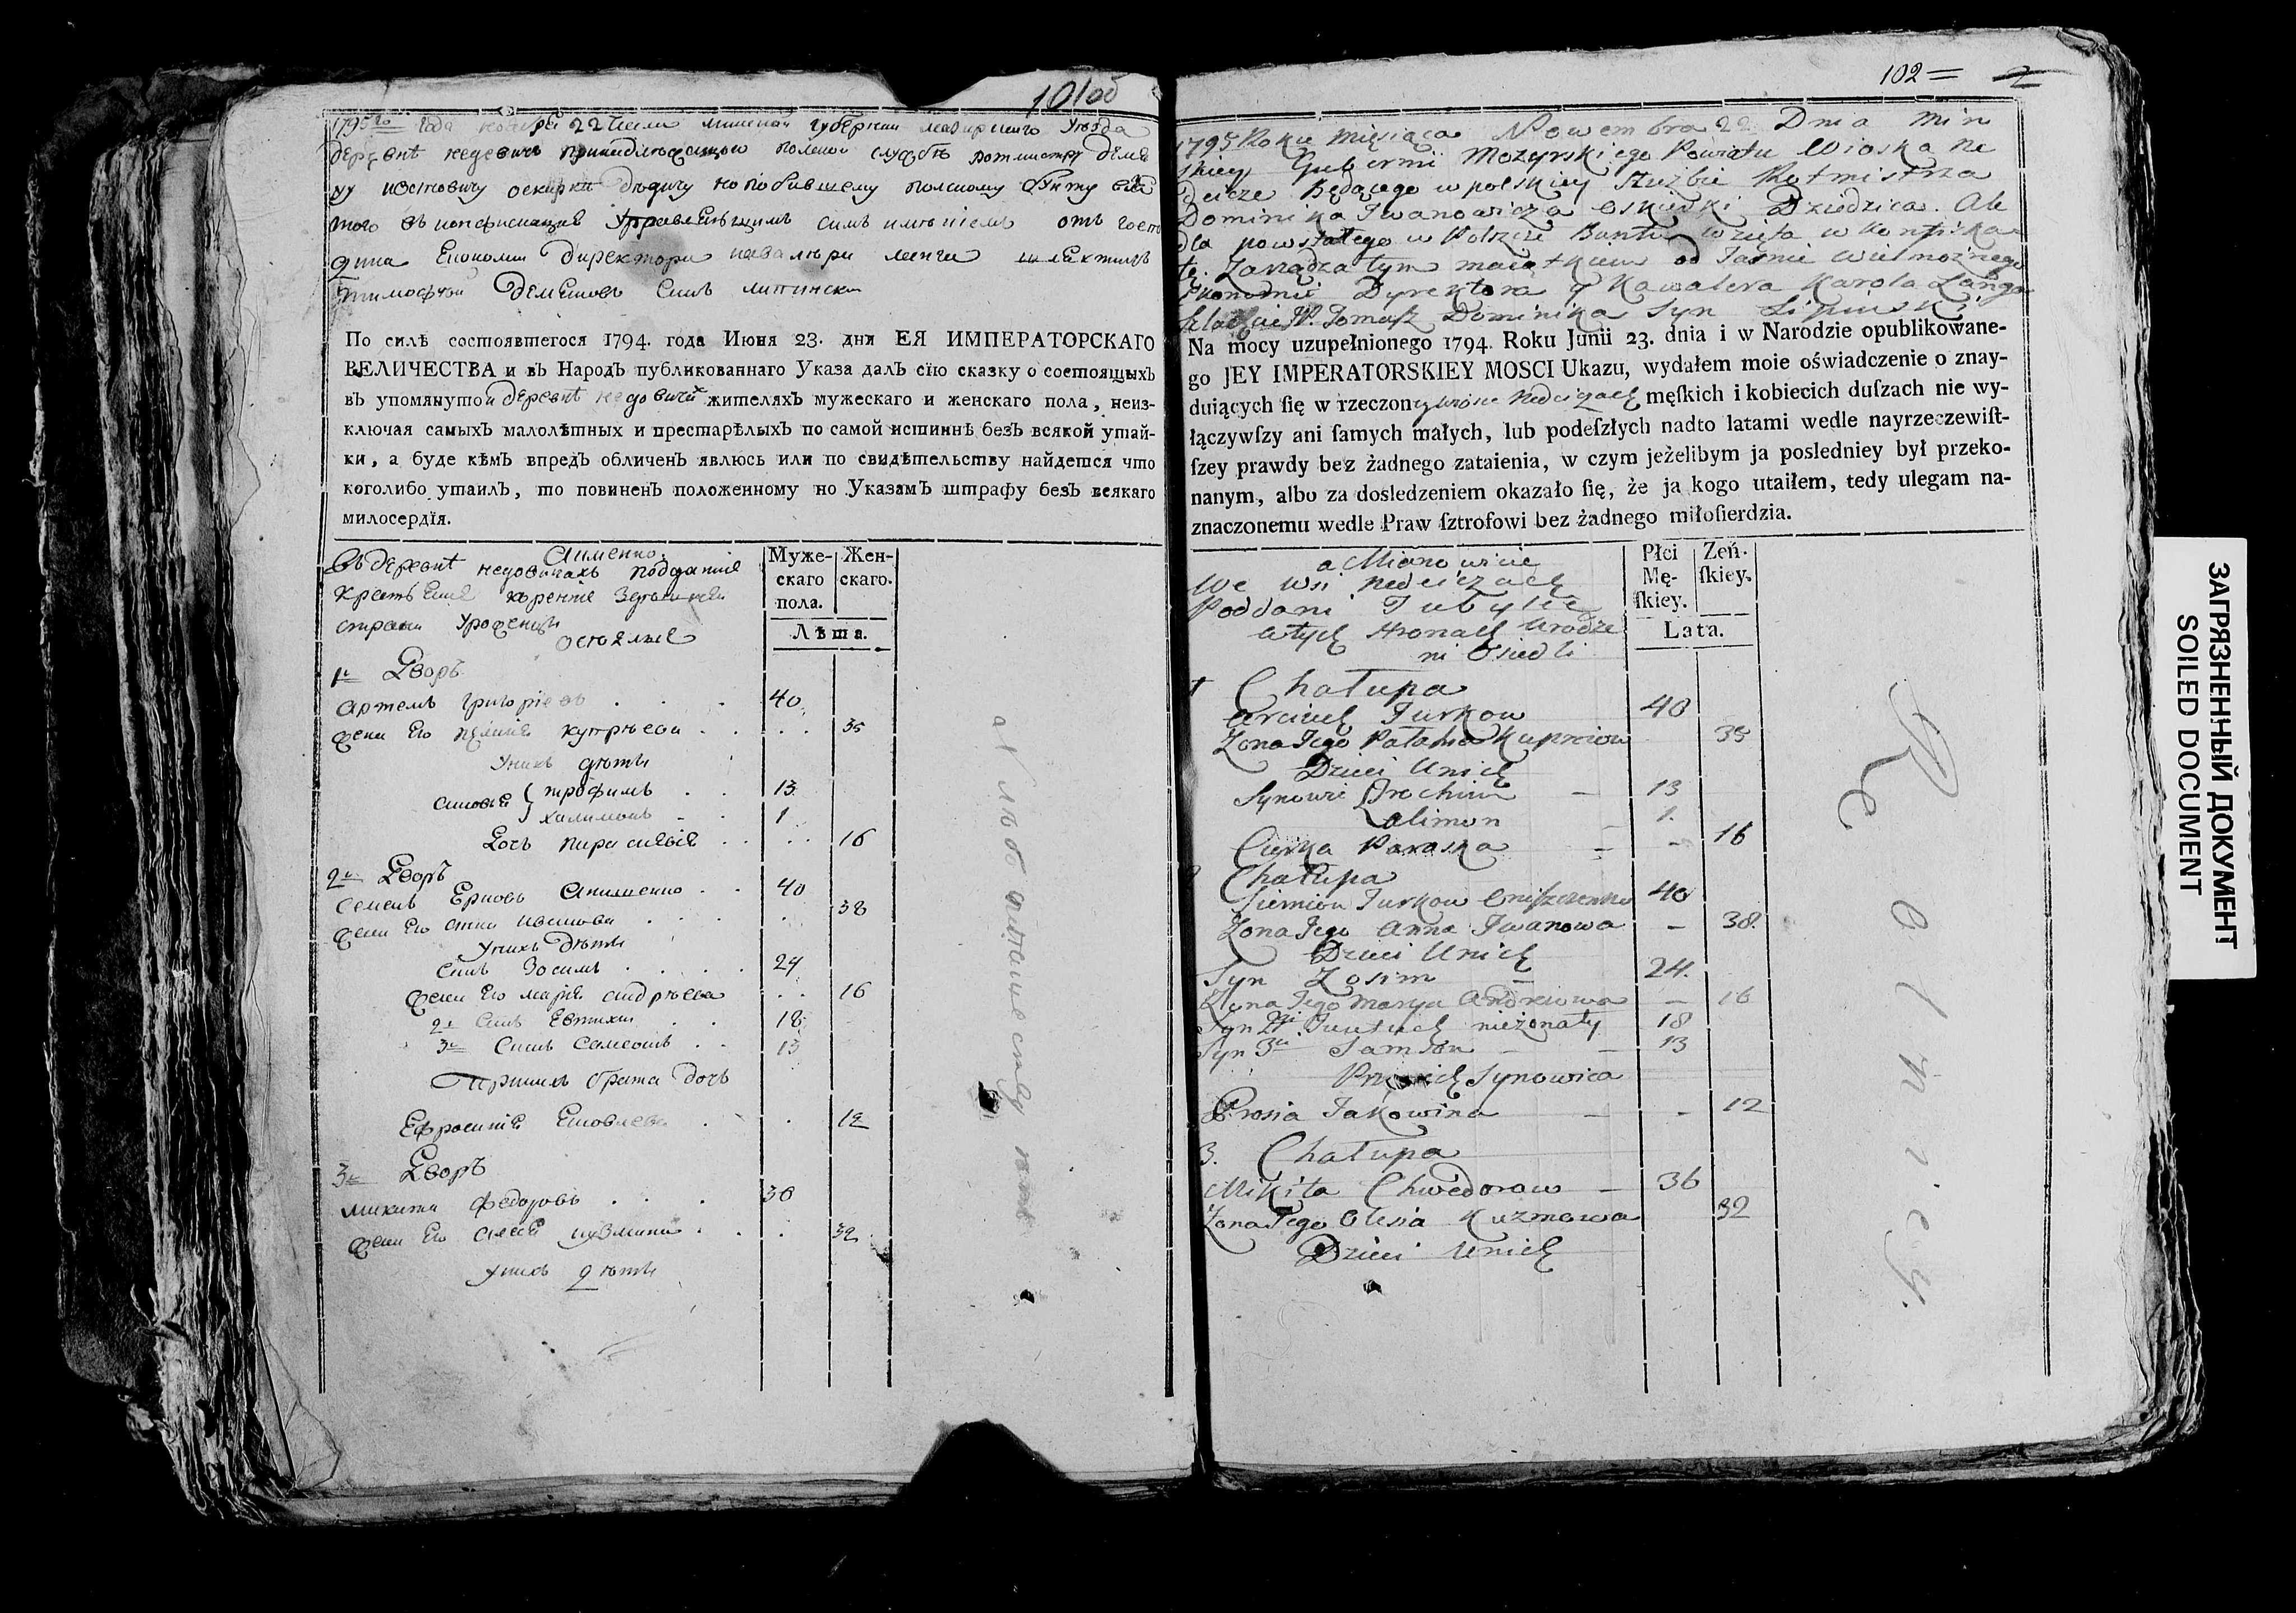 101об
1795го года ноября 22 числа минской губернии мозырскаго уезда
деревне недевич принадлежащой полской службе ротмистру деме
ну ивановичу оскирки дедичу но по бывшему полскому бунту
того в конфискацие управляющим сим имением от госпо
дина економии директора кавалера ланга шляхтич
тимофей деменов син липински
По силѣ состоявшегося 1794. года Июня 23. дня ЕЯ ИМПЕРАТОРСКАГО
ВЕЛИЧЕСТВА и въ Народъ публикованнаго Указа далъ сїю сказку о состоящыхъ
въ упомянутой деревнѣ недовичй жителяхъ мужескаго и женскаго пола, неиз-
ключая самыхъ малолѣтныхъ и престарѣлыхъ по самой истиннѣ безъ всякой утай-
ки, а буде кѣмъ впредъ обличенъ явлюсь или по свидѣтельству найдется что
коголибо утаилъ, то повиненъ положенному по Указамъ штрафу безъ всякаго
милосердїя.
Аименно
Въ деревнѣ недовичахъ поддание
страни уроженци
оселые
Муже-
скаго
пола.
Жен-
скаго.
Лѣта.
1й Дворъ
Артемъ григориевъ . . . 40
жена его купрѣева . . . . 35
Унихъ дѣти
синовья { трофимъ . . 13
халимонъ - . 1
Дочь параскевия . . . . 16
2й Дворъ
Семенъ Анищенко . . 40
жена его анна иванова . . . . 38
Унихъ дѣти
синъ Зосимъ . . . . 24
жена его мария андрѣева . . 16
2й синъ Евтихи . . 18
3й Синъ Самсонъ . . 13
При нихъ брата дочь
Ефросиния Яковлева . . 12
3й Дворъ
микита федоровъ . . . 36
жена его алена кузмина . . . 32
Унихъ дѣти
102 = 2
1795 Roku Miesiąca Nowembra 22 Dnia Min
skiey Gubernii Mozyrskiego Powiatu Wioska Ne
deicze Będącego w polskiey służbie Rotmistrza
Dominika Iwanowicza Oskierki Dziedzica. Ale
dla powstałego w Polszcze Buntu wzięta w Konfiska
te. Zarządza tym maiątkiem od Jaśnie Wielmożnego
Ekonomii Dyrektora y Kawalera Karola Langa
Szlachcic JP. Tomasz Dominika Syn Lipinski
Na mocy uzupełnionego 1794. Roku Junii 23. dnia i w Narodzie opublikowane-
go JEY IMPERATORSKIEY MOSCI Ukazu, wydałem moie oświadczenie o znay-
duiących ſię w rzeczoney wiosce Nedeiczach męſkich i kobiecich duſzach nie wy-
łączywſzy ani ſamych małych, lub podeſzłych nadto latami wedle nayrzeczewiſt-
ſzey prawdy bez żadnego zataienia, w czym jeżelibym ja posledniey był przeko-
nanym, albo za dosledzeniem okazało ſię, że ja kogo utaiłem, tedy ulegam na-
znaczonemu wedle Praw ſztrofowi bez żadnego miłoſierdzia.
a Mianowicie
We Wsi Nedeiczach
Poddani Tubylce
w tych stronach Urodze
ni Osiedli
Płci
Mę-
ſkiey.
Zeń-
ſkiey.
Lata.
1 Chałupa
Arciuch Jurkow 40
Zona Jego Połahia Kupreiowa 35
Dzieci Unich
Synowie { Trochim - 13
Alimon - 1.
Curka Paraska - - 16
Chałupa
Siemion Jurkow Oniszczenko 40
Zona Jego Anna Jwanowa - 38.
Dzieci Unich
Syn Zosim - 24.
Zona Jego Marya Andreiowa - 16
Syn 2gi Jeutuch nieżonaty 18
Syn 3ci Samson - - 13
Przy nich Synowica
Prosia Jakowina - - 12
3. Chałupa
Mikita Chwedorow - 36
Zona Jego Olesia Kuzmowa 32
Dzieci Unich
Rolniey.
ЗАГРЯЗНЕННЫЙ ДОКУМЕНТ
SOILED DOCUMENT